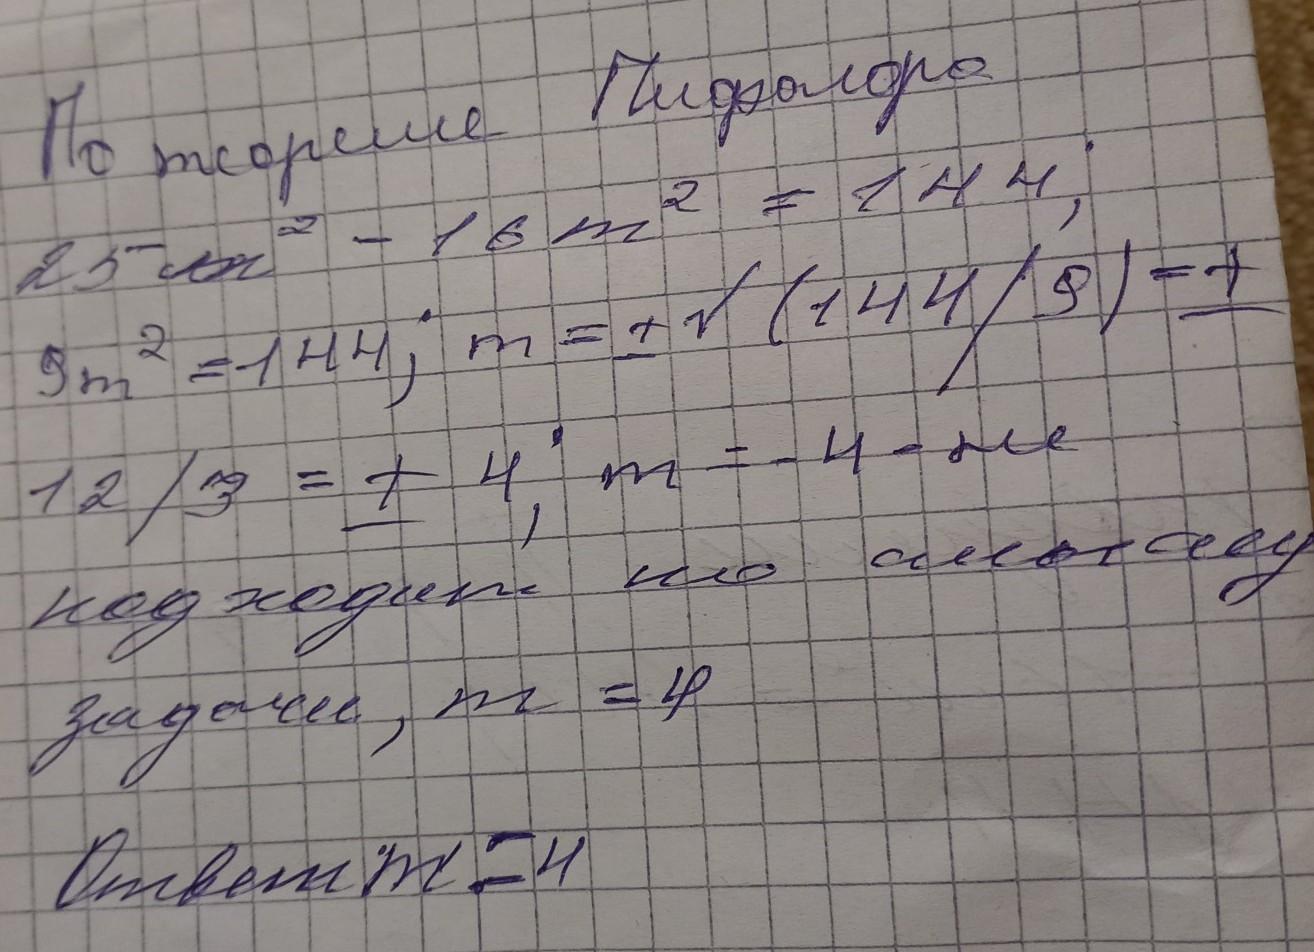 По теореме Пифагора
25m² - 16m² = 144;
9m² = 144; m = ±√(144/9) = ±
12/3 = ± 4; m = -4 - не
подходит по смыслу
задачи, m = 4
Ответ m = 4